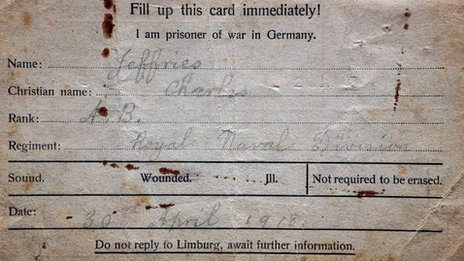 Fill up this card immediately!
I am prisoner of war in Germany.
Name: Jeffries
Christian name: Charles
Rank: A.B.
Regiment: Royal Naval Division
Sound. Wounded. Ill. Not required to be erased.
Date: 30th April 1918.
Do not reply to Limburg, await further information.